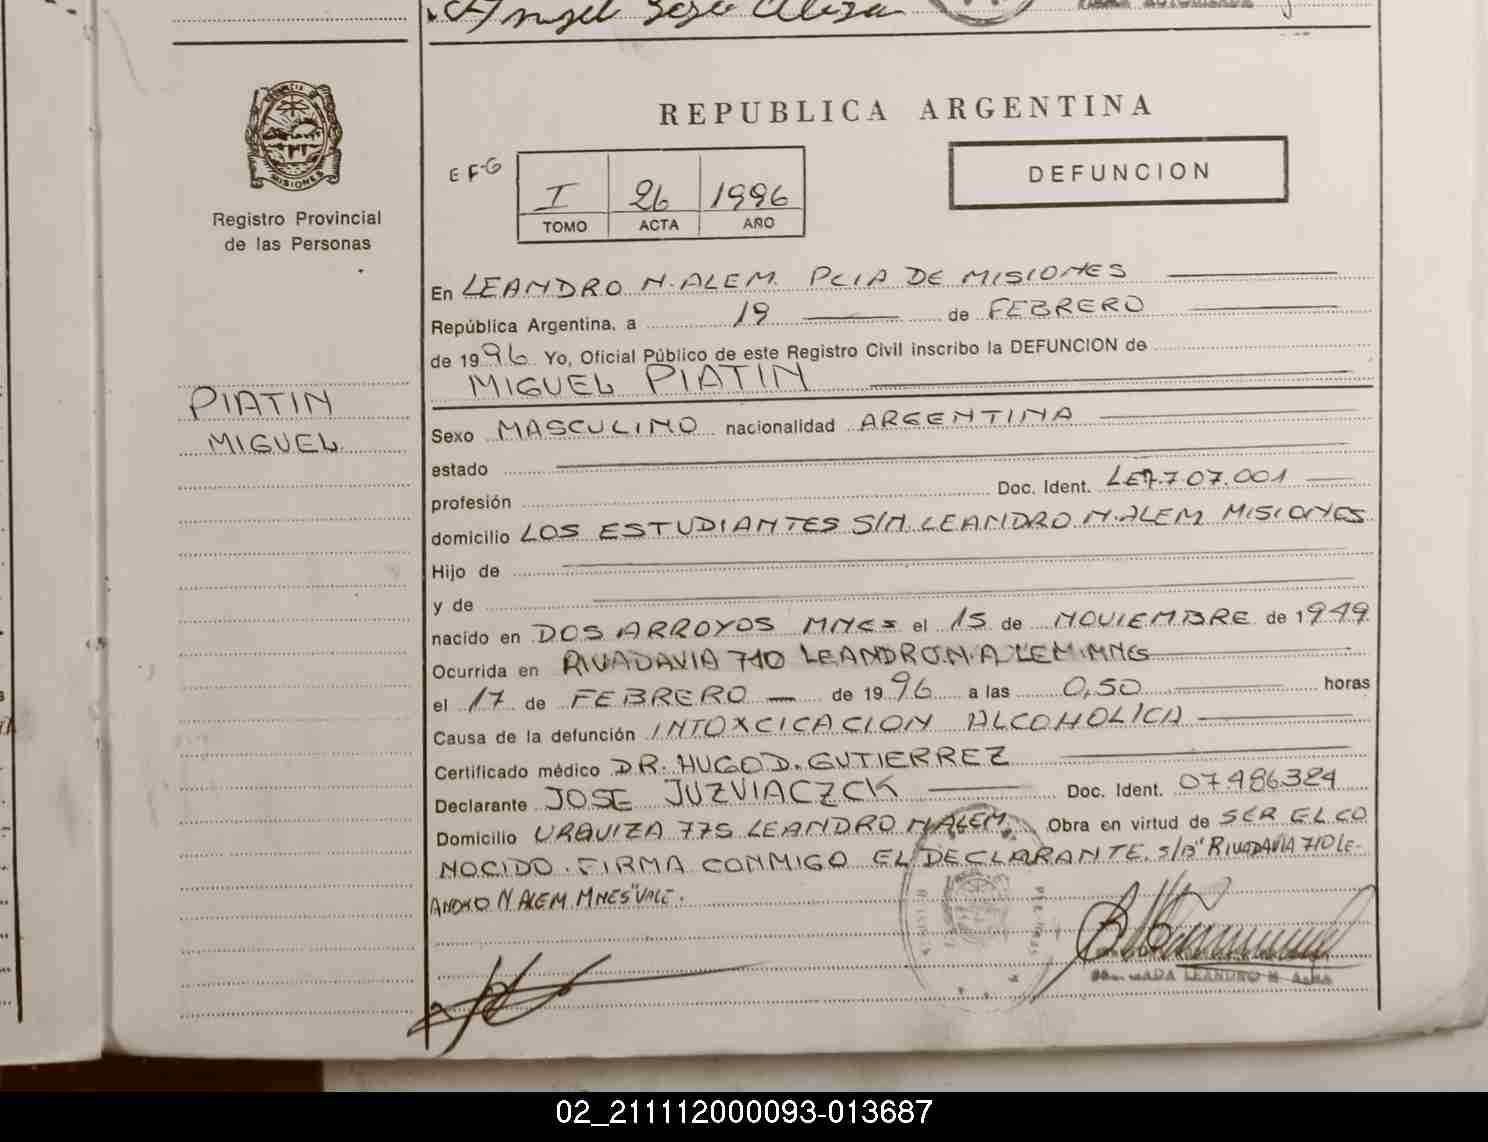 Angel
REPUBLICA ARGENTINA
DEFUNCION
E F-G
I 26 1996
TOMO ACTA AÑO
PROVINCIA DE
MISIONES
Registro Provincial
de las Personas
PIATIN
MIGUEL
En LEANDRO N. ALEM. PCIA DE MISIONES
República Argentina, a 19 de FEBRERO
de 1996 Yo, Oficial Público de este Registro Civil inscribo la DEFUNCION de
MIGUEL PIATIN
Sexo MASCULINO nacionalidad ARGENTINA
estado
profesión Doc. Ident. LE7.707.001
domicilio LOS ESTUDIANTES S/N LEANDRO N. ALEM MISIONES
Hijo de
y de
nacido en DOS ARROYOS MNES el 15 de NOVIEMBRE de 1949
Ocurrida en RIVADAVIA 710 LEANDRO N. ALEM. MNES
el 17 de FEBRERO de 1996 a las 0,50 horas
Causa de la defunción INTOXCICACION ALCOHOLICA
Certificado médico DR. HUGO D. GUTIERREZ
Declarante JOSE JUZVIACZCK Doc. Ident. 07.486.324
Domicilio URQUIZA 775 LEANDRO N ALEM. Obra en virtud de SER EL CO
NOCIDO. FIRMA CONMIGO EL DECLARANTE. S/B "RIVADAVIA 710 LE-
ANDRO N. ALEM. MNES" VALE.
LEANDRO N. ALEM
02_211112000093-013687